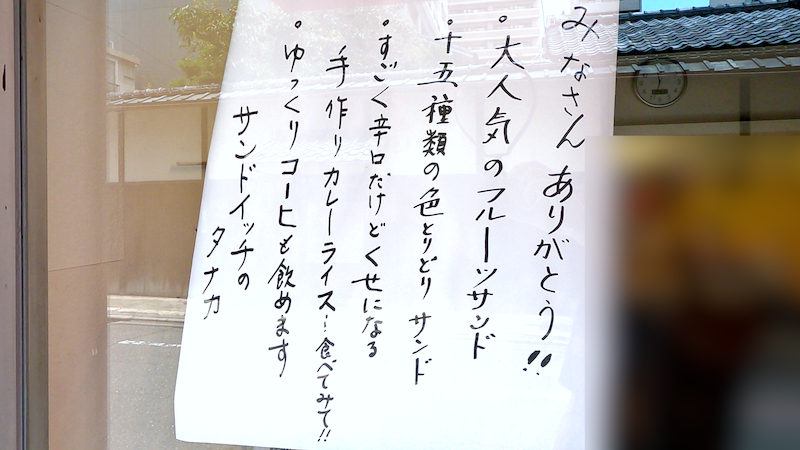 みなさん ありがとう!!
・大人気のフルーツサンド
・十五種類の色とりどり サンド
・すごく辛口だけどくせになる
手作りカレーライス!食べてみて!!
・ゆっくりコーヒも飲めます
サンドイッチの
タナカ